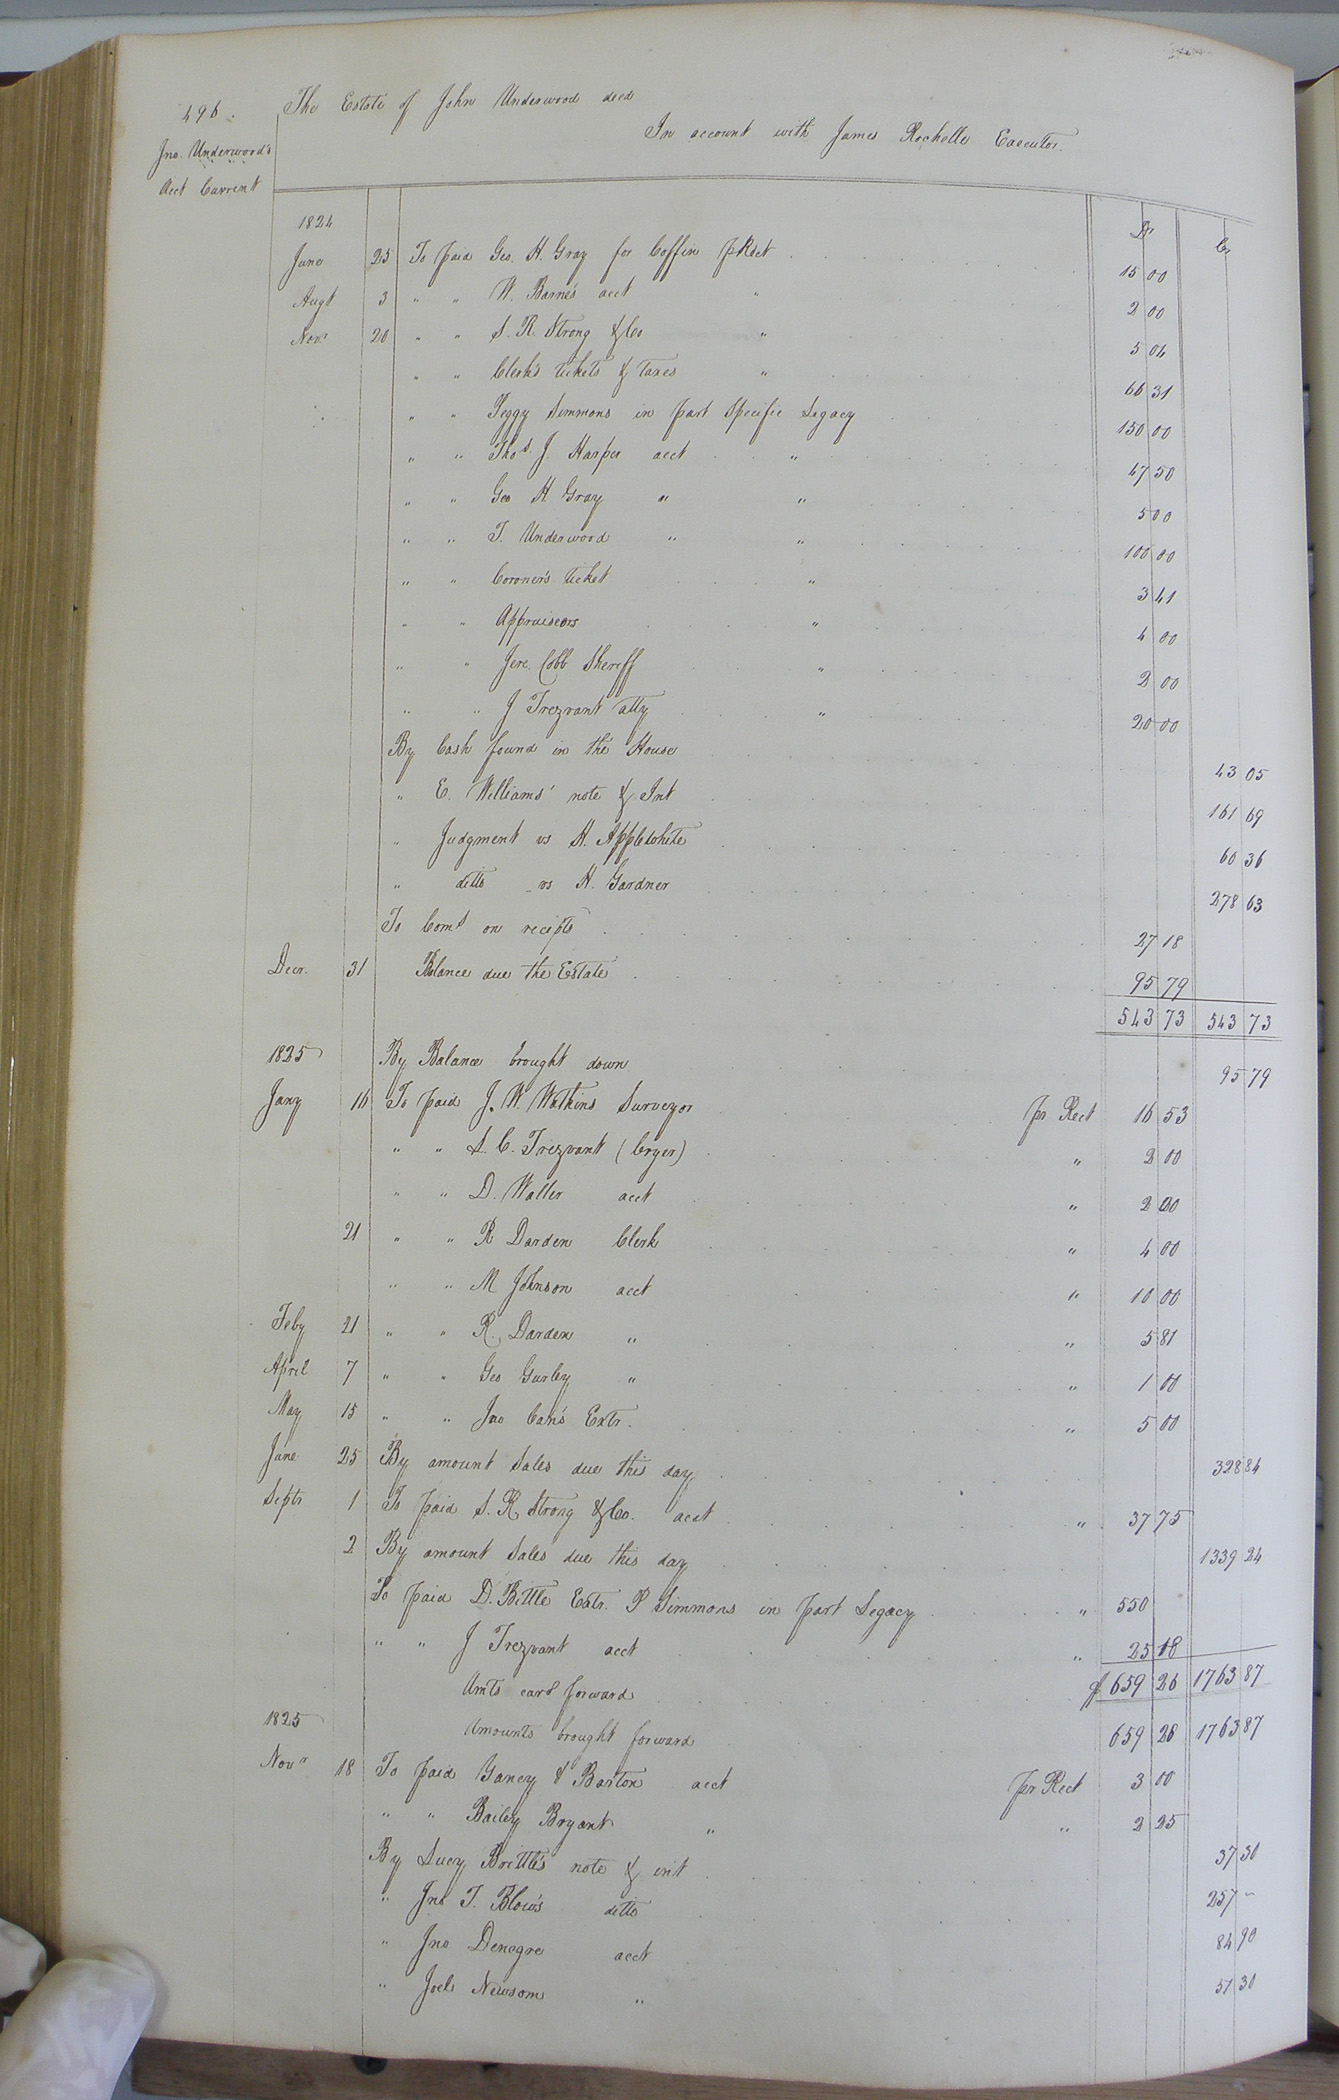 496.
The Estate of John Underwood decd
In account with James Rochelle Executor.
Jno. Underwood's
Acct Current
Dr Cr
1824
June 25 To paid Geo. H. Gray for Coffin pRect 15 00
Augt 3 " " W. Barne's acct " 2 00
Novr 20 " " S. R. Strong & Co " 5 04
" " Clerk's tickets & Taxes " 66 31
" " Peggy Simmons in part Specific Legacy 150 00
" " Thos. J. Harper acct " 47 50
" " Geo H Gray " " 5 00
" " T. Underwood " " 100 00
" " Coroner's ticket " 3 41
" " Appraiseors " 4 00
" " Jere. Cobb Sheriff " 2 00
" " J Trezvant atty " 20 00
By Cash found in the House 43 05
" E. Williams' note & Int 161 69
" Judgment vs H. Applewhite 60 36
" ditto vs H. Gardner 278 63
To Coms on recipts 27 18
Decr. 31 Balance due the Estate 95 79
543 73 543 73
1825 By Balance brought down 95 79
Jany 16 To paid J. W. Watkins Surveyor pr Rect 16 53
" " S. C. Trezvant (Cryer) " 2 00
" " D. Waller acct " 2 00
21 " " R Darden Clerk " 4 00
" " M Johnson acct " 10 00
Feby 21 " " R. Darden " " 5 81
April 7 " " Geo Gurley " " 1 00
May 15 " " Jno Car's Extr. " 5 00
June 25 By amount Sales due this day 328 84
Septr 1 To paid S. R Strong & Co. acct " 37 75
2 By amount Sales due this day 1339 24
To paid D. Bittle Extr. P Simmons in part Legacy " 550
" " J Trezvant acct " 25 18
Amts card forward $ 659 26 1763 87
1825 Amounts brought forward 659 26 1763 87
Novr 18 To paid Ganey & Barton acct pr Rect 3 00
" " Bailey Bryant " " 2 25
By Lucy Brittle's note & int 37 30
" Jno T. Blow's ditto 257 -
" Jno Denegre acct 84 90
" Joel Newsom " 51 30